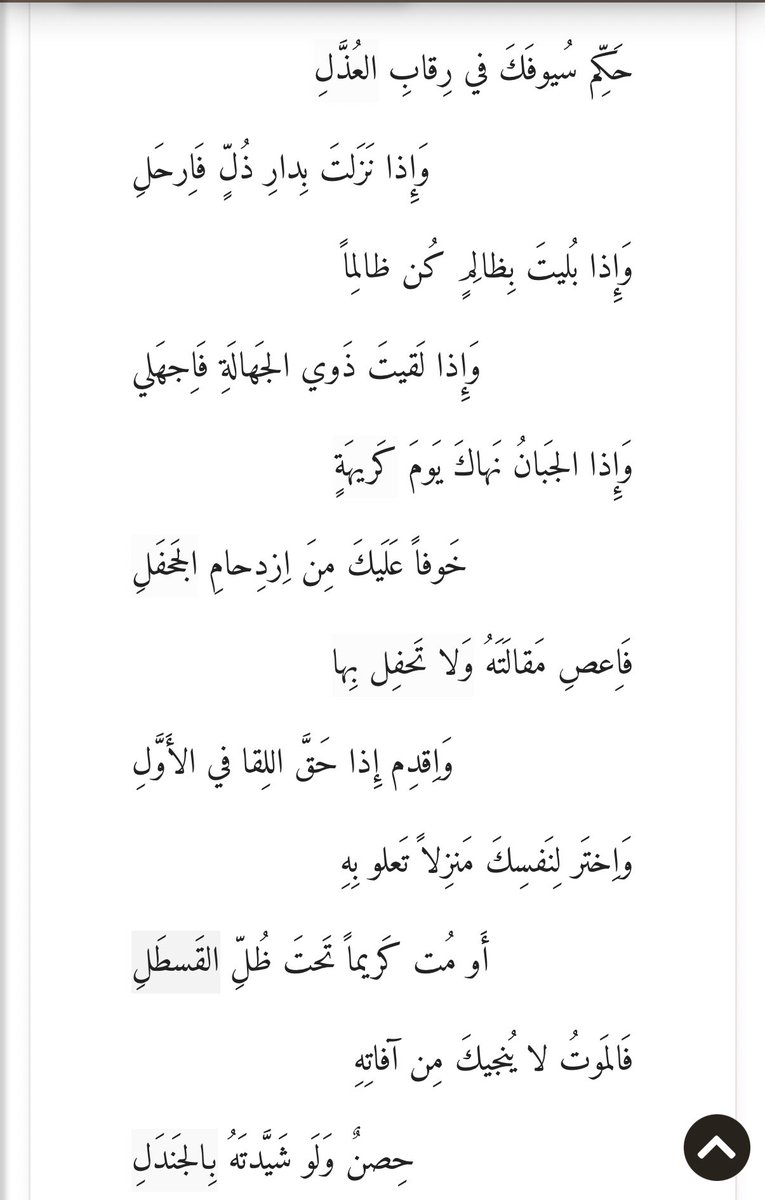 حَكِّم سُيوفَكَ في رِقابِ العُذَّلِ
وَإِذا نَزَلتَ بِدارِ ذُلٍّ فَاِرحَلِ
وَإِذا بُليتَ بِظالِمٍ كُن ظالِماً
وَإِذا لَقيتَ ذَوي الجَهالَةِ فَاِجهَلي
وَإِذا الجَبانُ نَهاكَ يَومَ كَريهَةٍ
خَوفاً عَلَيكَ مِنَ اِزدِحامِ الجَحفَلِ
فَاِعصِ مَقالَتَهُ وَلا تَحفِل بِها
وَاِقدِم إِذا حَقَّ اللِقا في الأَوَّلِ
وَاِختَر لِنَفسِكَ مَنزِلاً تَعلو بِهِ
أَو مُت كَريماً تَحتَ ظُلِّ القَسطَلِ
فَالمَوتُ لا يُنجيكَ مِن آفاتِهِ
حِصنٌ وَلَو شَيَّدتَهُ بِالجَندَلِ